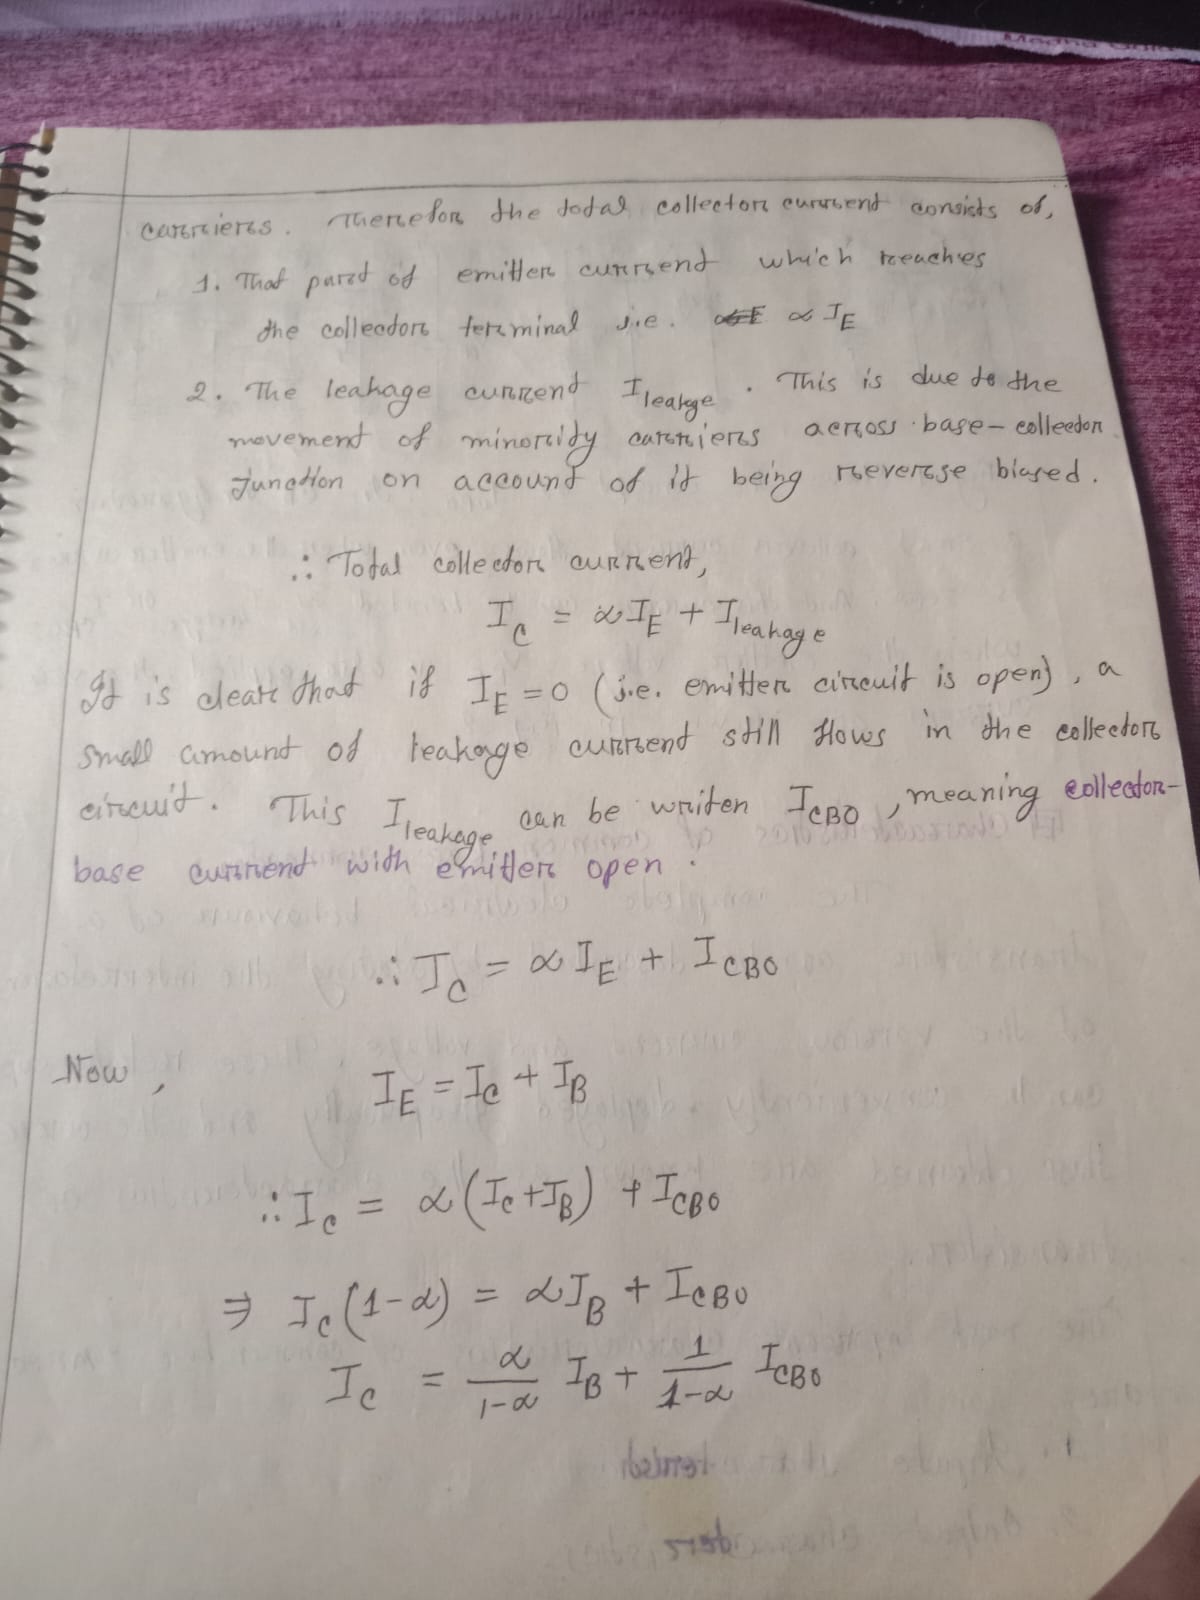 carriers. Therefor the total collector current consists of,
1. That part of emitter current which reaches
the collector terminal i.e. α I_E
2. The leakage current I_leakge. This is due to the
movement of minority carriers across base-collector
junction on account of it being reverse biased.
∴ Total collector current,
I_C = αI_E + I_leakage
It is clear that if I_E = 0 (i.e. emitter circuit is open), a
small amount of leakage current still flows in the collector
circuit. This I_leakage can be writen I_CBO, meaning collector-
base current with emitter open.
∴ I_C = αI_E + I_CBO
Now, I_E = I_C + I_B
∴ I_C = α(I_C + I_B) + I_CBO
⇒ I_C(1-α) = αI_B + I_CBO
I_C = α/(1-α) I_B + 1/(1-α) I_CBO